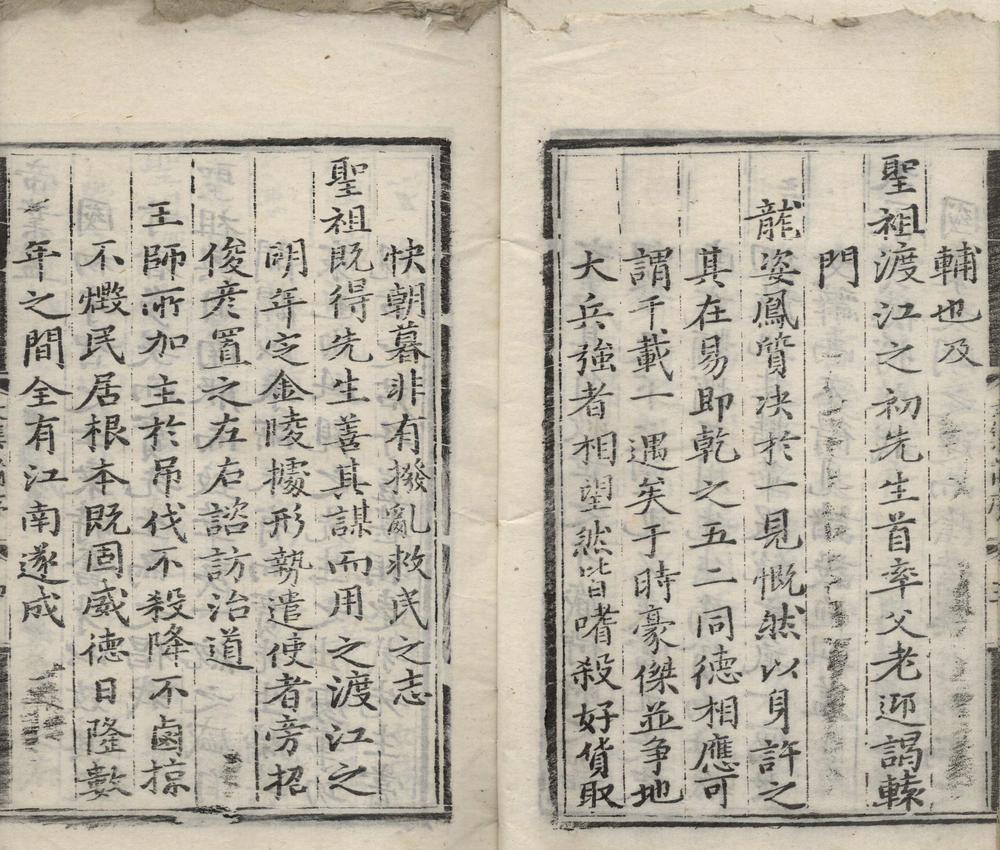 輔也及
聖祖渡江之初先生首率父老迎謁轅
門
龍姿鳳質决於一見慨然以身許之
其在易即乾之五二同德相應可
謂千載一遇矣于時豪傑並爭地
大兵強者相望然皆嗜殺好貨取
快朝暮非有撥亂救民之志
聖祖既得先生善其謀而用之渡江之
明年定金陵據形勢遣使者旁招
俊彥置之左右諮訪治道
王師所加主於吊伐不殺降不鹵掠
不燬民居根本既固威德日隆數
年之間全有江南遂成